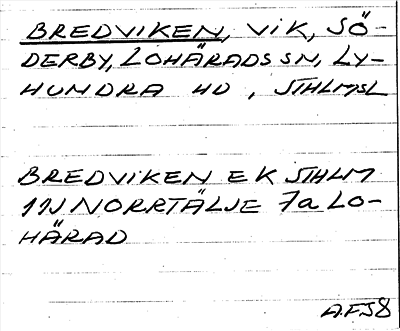 BREDVIKEN, VIK, SÖ-
DERBY, LOHÄRADS SN, LY-
HUNDRA HD, STHLMSL
BREDVIKEN EK STHLM
11J NORRTÄLJE 7a LO-
HÄRAD
A.F.58